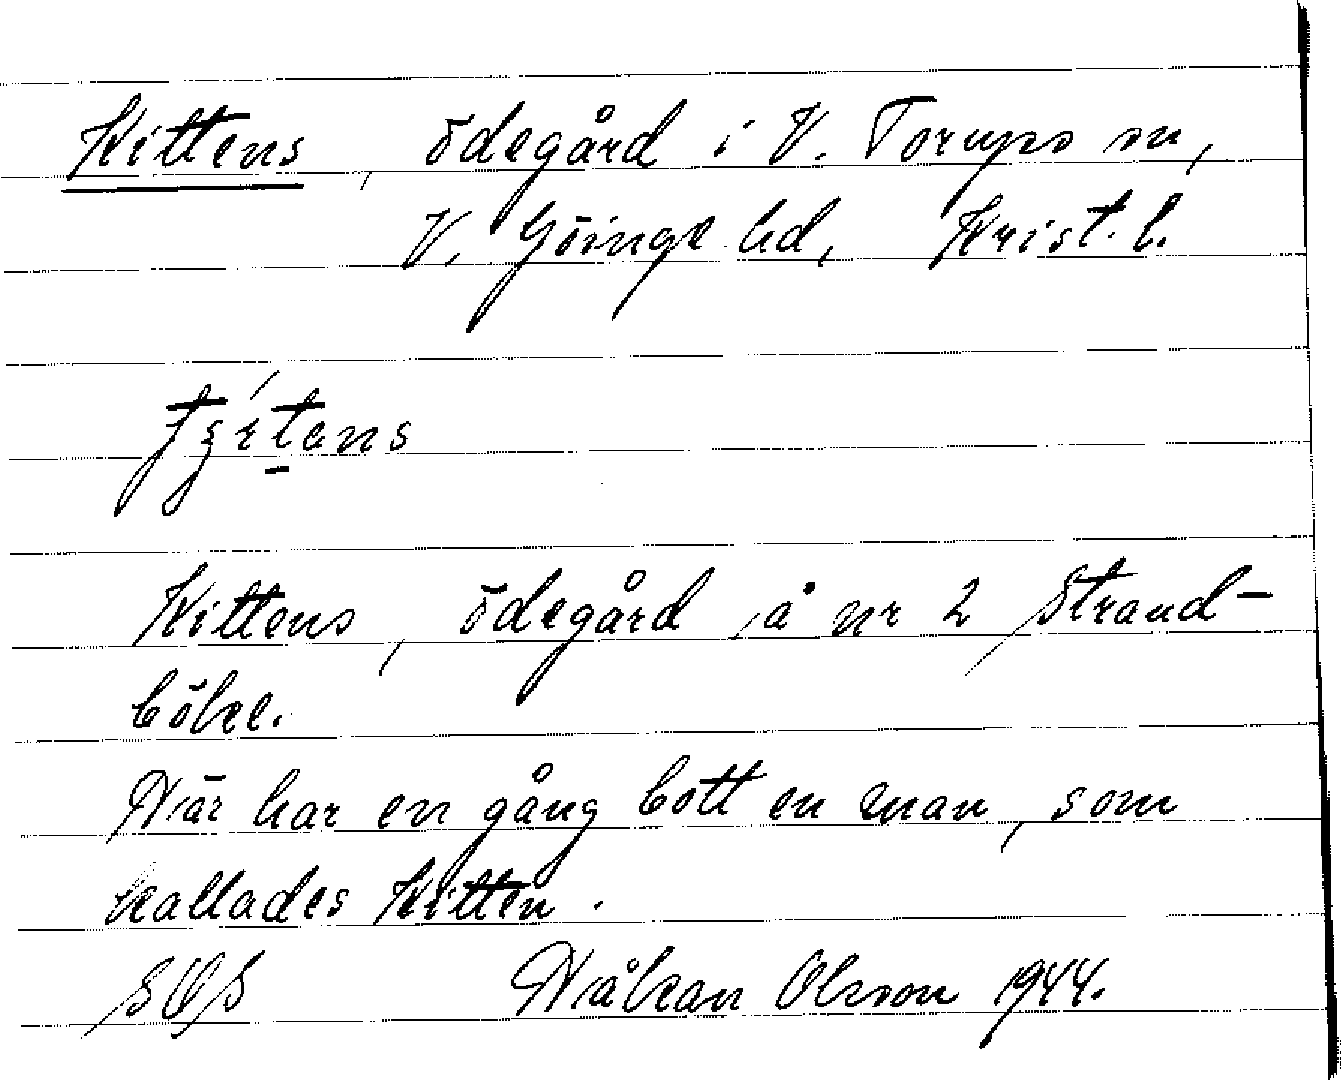 Kittens, ödegård i V. Torups sn,
V. Göinge hd, Krist. l.
Kittens, ödegård å nr 2 Strand-
böke.
Här har en gång bott en man, som
kallades Kitten.
SOS Håkan Olsson 1944.